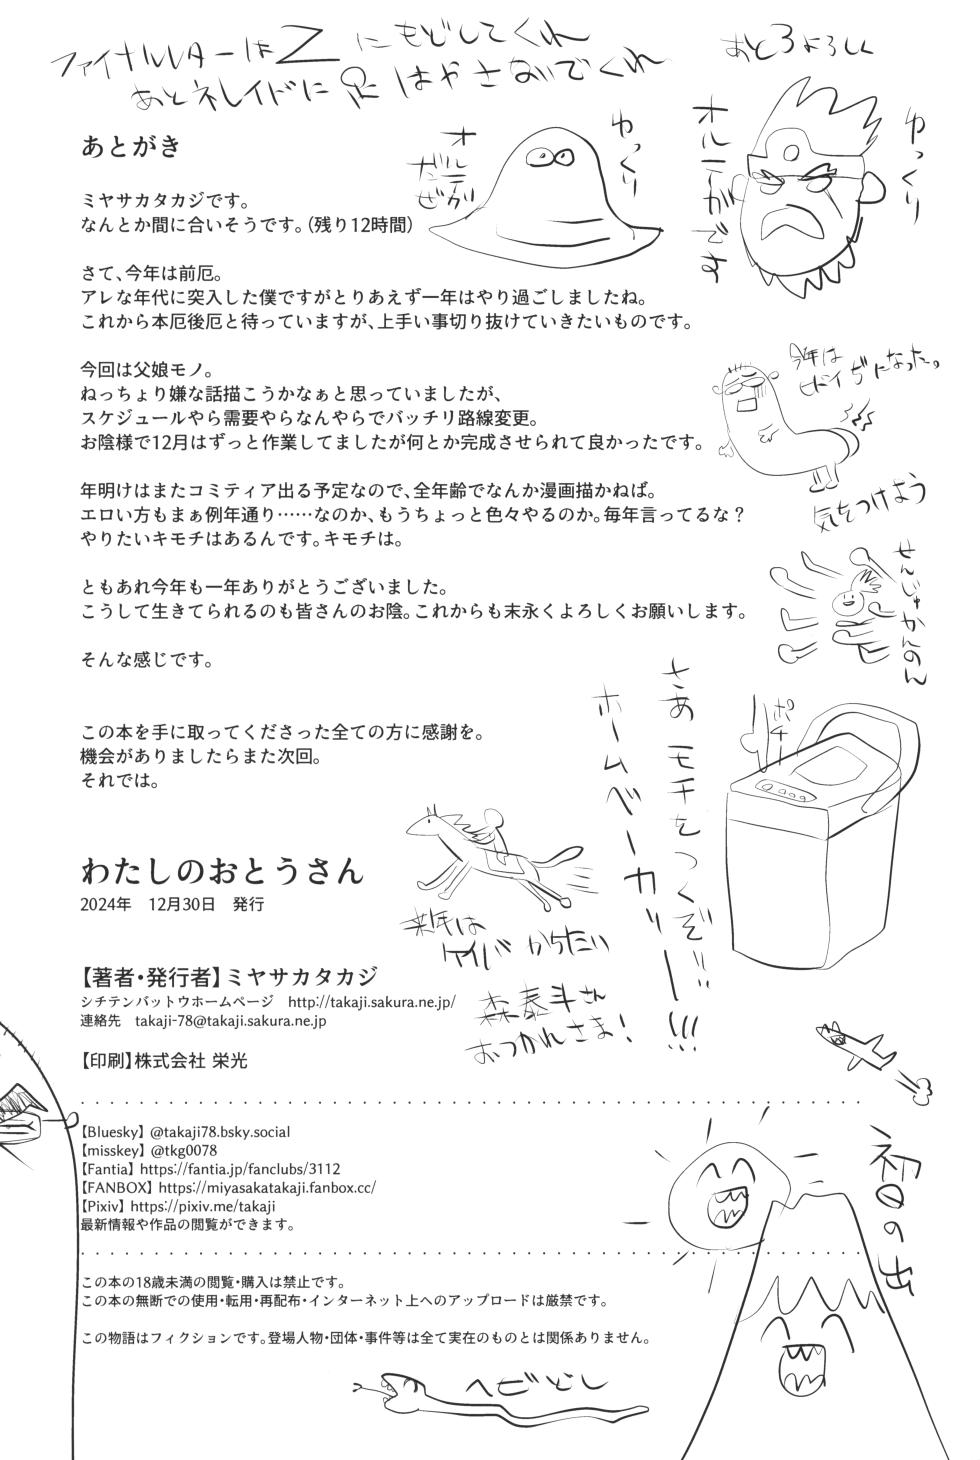 ファイナルレターはZにもどしてくれ
あとネレイドに足はやさないでくれ
あと3よろしく
ゆっくり
オルテガだぜ
ゆっくり
オルテガです
あとがき
ミヤサカタカジです。
なんとか間に合いそうです。（残り12時間）
さて、今年は前厄。
アレな年代に突入した僕ですがとりあえず一年はやり過ごしましたね。
これから本厄後厄と待っていますが、上手い事切り抜けていきたいものです。
今回は父娘モノ。
ねっちょり嫌な話描こうかなぁと思っていましたが、
スケジュールやら需要やらなんやらでバッチリ路線変更。
お陰様で12月はずっと作業してましたが何とか完成させられて良かったです。
今年は
ヒドイぢになった。
気をつけよう
年明けはまたコミティア出る予定なので、全年齢でなんか漫画描かねば。
エロい方もまぁ例年通り……なのか、もうちょっと色々やるのか。毎年言ってるな？
やりたいキモチはあるんです。キモチは。
せんじゅかんのん
ともあれ今年も一年ありがとうございました。
こうして生きてられるのも皆さんのお陰。これからも末永くよろしくお願いします。
そんな感じです。
この本を手に取ってくださった全ての方に感謝を。
機会がありましたらまた次回。
それでは。
さあ モチをつくぞ!!
ホームベーカリー!!!
ポチー
わたしのおとうさん
2024年　12月30日　発行
来年は
ケイバ からたい
森泰斗さん
おつかれさま!
【著者・発行者】ミヤサカタカジ
シチテンバットウホームページ　http://takaji.sakura.ne.jp/
連絡先　takaji-78@takaji.sakura.ne.jp
【印刷】株式会社 栄光
【Bluesky】@takaji78.bsky.social
【misskey】@tkg0078
【Fantia】https://fantia.jp/fanclubs/3112
【FANBOX】https://miyasakatakaji.fanbox.cc/
【Pixiv】https://pixiv.me/takaji
最新情報や作品の閲覧ができます。
初日の出
この本の18歳未満の閲覧・購入は禁止です。
この本の無断での使用・転用・再配布・インターネット上へのアップロードは厳禁です。
この物語はフィクションです。登場人物・団体・事件等は全て実在のものとは関係ありません。
ヘビどし